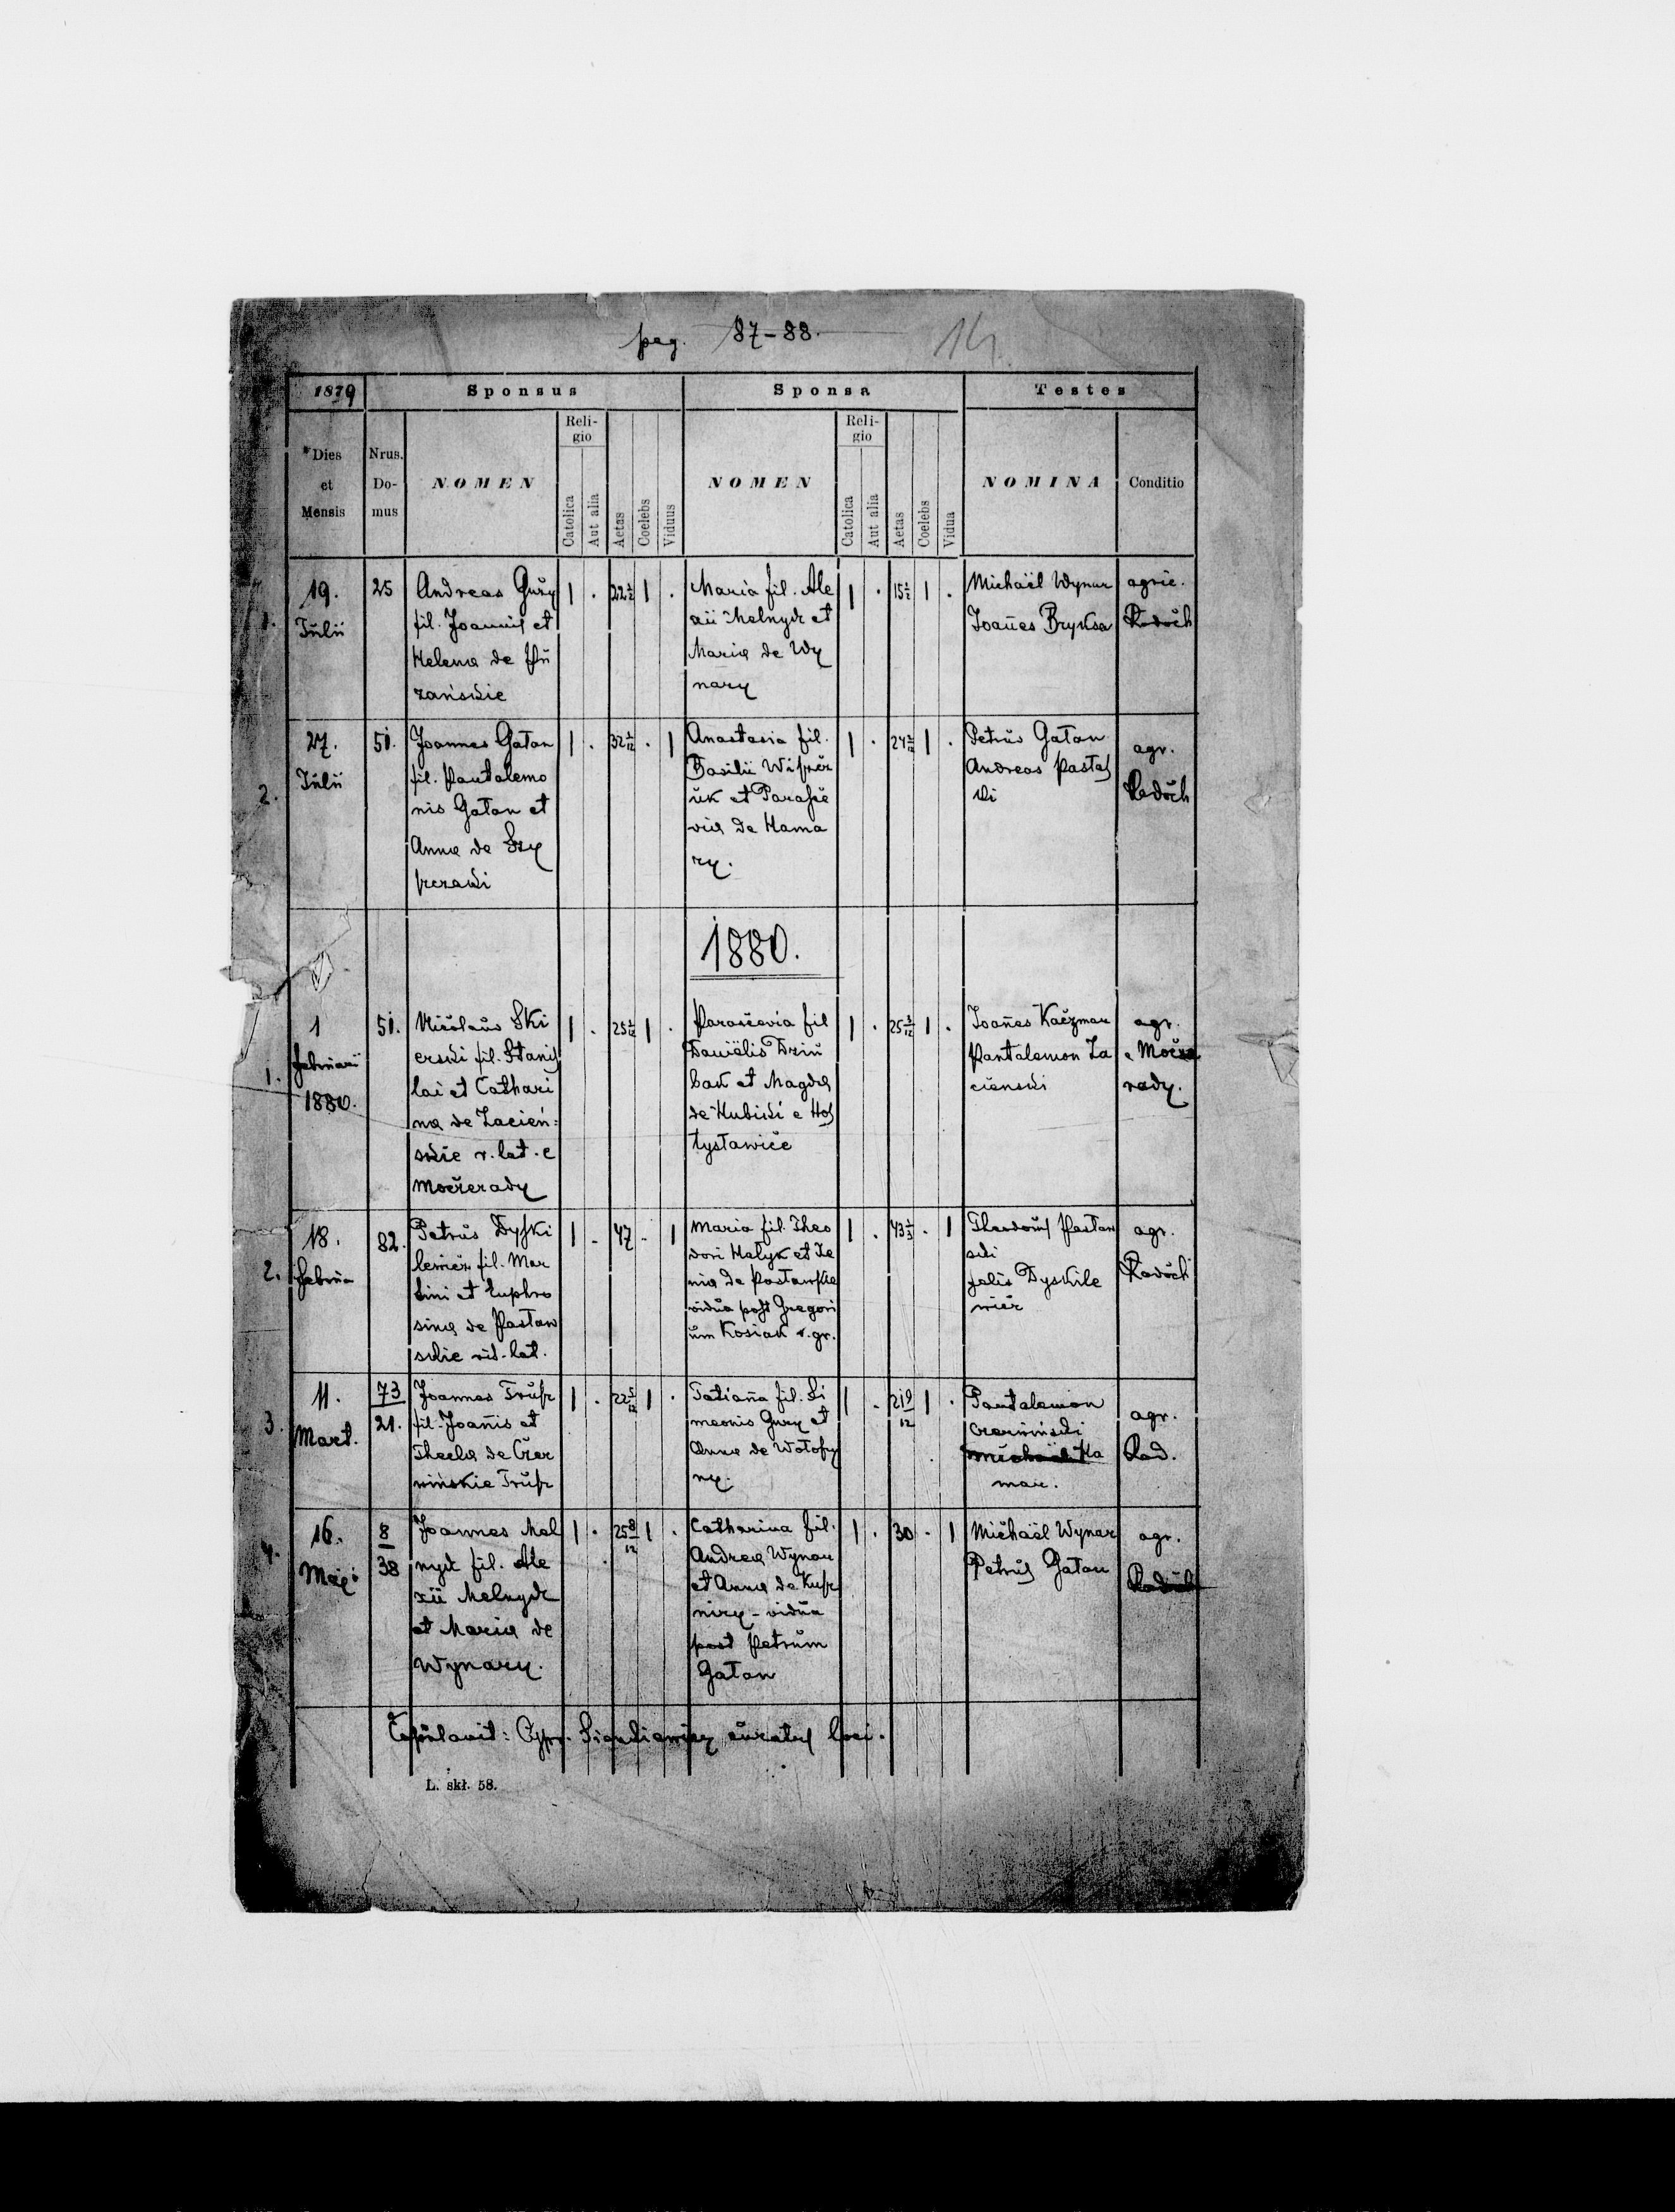 pag. 87-88.
14.
1879 Sponsus Sponsa Testes
Dies et Mensis Nrus. Do-mus NOMEN Reli-gio Catolica Aut alia Aetas Coelebs Viduus NOMEN Reli-gio Catolica Aut alia Aetas Coelebs Vidua NOMINA Conditio
1.
19.
Julii
25
Andreas Gury
fil. Joannis et
Helena de
zańskie
1 . 1 .
Maria fil. Ale
xii Melnyk et
Maria de Wy
nary
1 . 1 .
Michaël Wynar
Joañes Bryksa
agric.
Radoch
2.
27.
Julii
51.
Joannes Gatan
fil. Pantalemo
nis Gatan et
Anna de Szy
1 . . 1
Anastasia fil.
Basilii
uk et Parasce
via de Hama
ry.
1 . 1 .
Petrus Gatan
Andreas
agr.
Radoch
1880.
1.
1
Februarii
1880.
51.
Nicolaus Ski
erski fil. Stanis
lai et Cathari
na de Zacień:
skie r. lat. e
Moczerady
1 . 1 .
Parascevia fil
Daniëlis Dziu
bak et Magda
de Hubicki e Hos
tysławice
1 . 1 .
Joañes Kaczmar
Pantalemon Za
cienski
agr.
e Mocze
rady.
2.
18.
Februa
82.
Petrus Dyski
lewicz fil. Mar
tini et Euphro
sina de Pastaw
skie rit. lat.
1 . 47 . 1
Maria fil. Theo
dori Hatyk et Xe
nia de Pastawske
vidua post Gregori
um Kosiak r. gr.
1 . . 1
Theodorus Pastaw
ski
Felix Dyskile
wicz
agr.
Radoch
3.
11.
Mart.
73
21.
Joannes Trusz
fil. Joañis et
Thecla de Czer
wińskie Trusz
1 . 22 5/12 1 .
Tatiaña fil. Si
meonis Gury et
Anna de
ny.
1 . 21 9/12 1 .
Pantalemon
Czerwiński
Michaël Ha
mar.
agr.
Rad.
4.
16.
Maji
8
38
Joannes Mel
nyk fil. Ale
xii Melnyk
et Maria de
Wynary.
1 . 25 8/12 1 .
Catharina fil.
Andrea Wynar
et Anna de Kusz
niry - vidua
post Petrum
Gatan
1 . 30 . 1
Michaël Wynar
Petrus Gatan
agr.
Radoch
Copulavit: Cypr. curatus loci.
L. skł. 58.